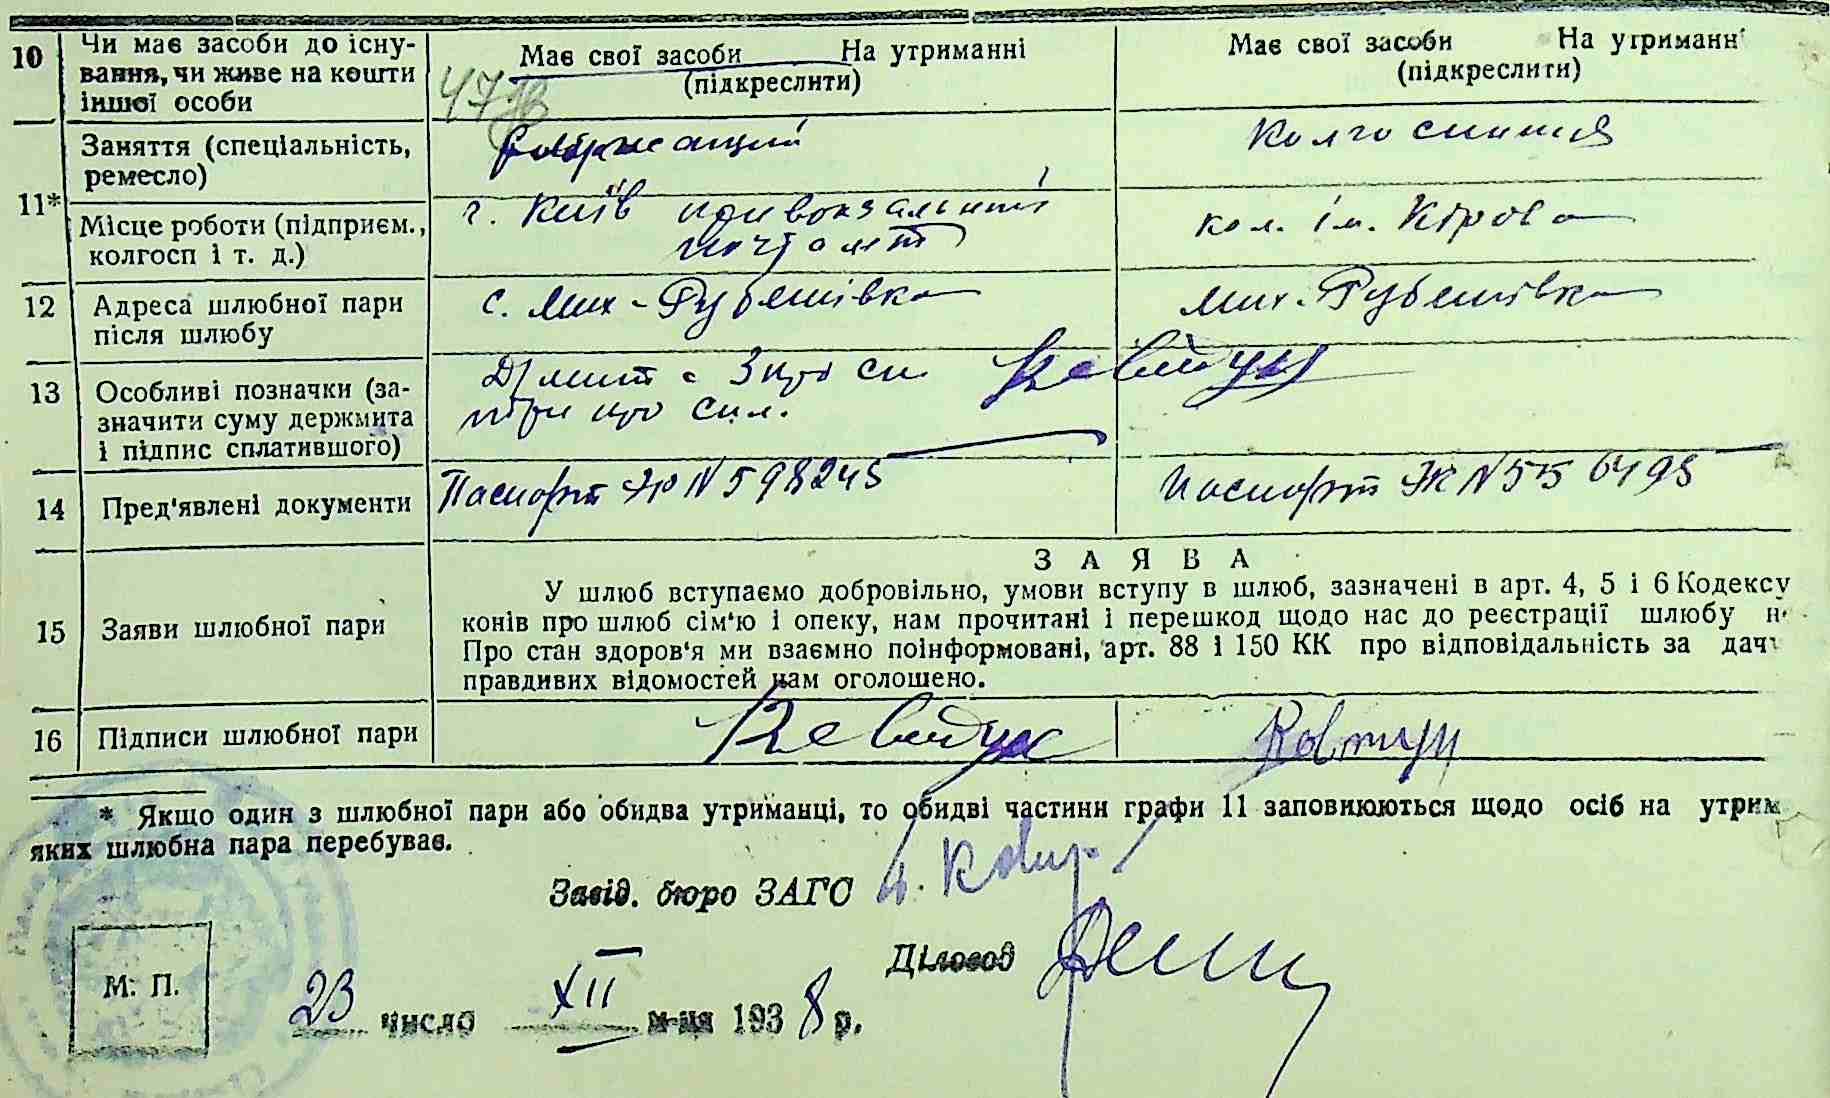 10 Чи має засоби до існу-
вання, чи живе на кошти
іншої особи
Має свої засоби На утриманні
(підкреслити)
Має свої засоби На утриманн
(підкреслити)
11* Заняття (спеціальність,
ремесло)
колгоспниця
Місце роботи (підприєм.,
колгосп і т. д.)
г. Київ привокзальний
почтамт
кол. ім. Кірова
12 Адреса шлюбної пари
після шлюбу
с. Мих-Рубежівка
Мих-Рубежівка
13 Особливі позначки (за-
значити суму держмита
і підпис сплатившого)
14 Пред'явлені документи
Паспорт ЭЮ N 598245
Паспорт ЭЖ N 55 6495
15 Заяви шлюбної пари
ЗАЯВА
У шлюб вступаємо добровільно, умови вступу в шлюб, зазначені в арт. 4, 5 і 6 Кодексу
конів про шлюб сім'ю і опеку, нам прочитані і перешкод щодо нас до реєстрації шлюбу н
Про стан здоров'я ми взаємно поінформовані, арт. 88 і 150 КК про відповідальність за дач
правдивих відомостей нам оголошено.
16 Підписи шлюбної пари
Ковтун
* Якщо один з шлюбної пари або обидва утриманці, то обидві частини графи 11 заповнюються щодо осіб на утрим
яких шлюбна пара перебуває.
Завід. бюро ЗАГС
Діловод
М. П.
23 число XII м-ця 1938 р.